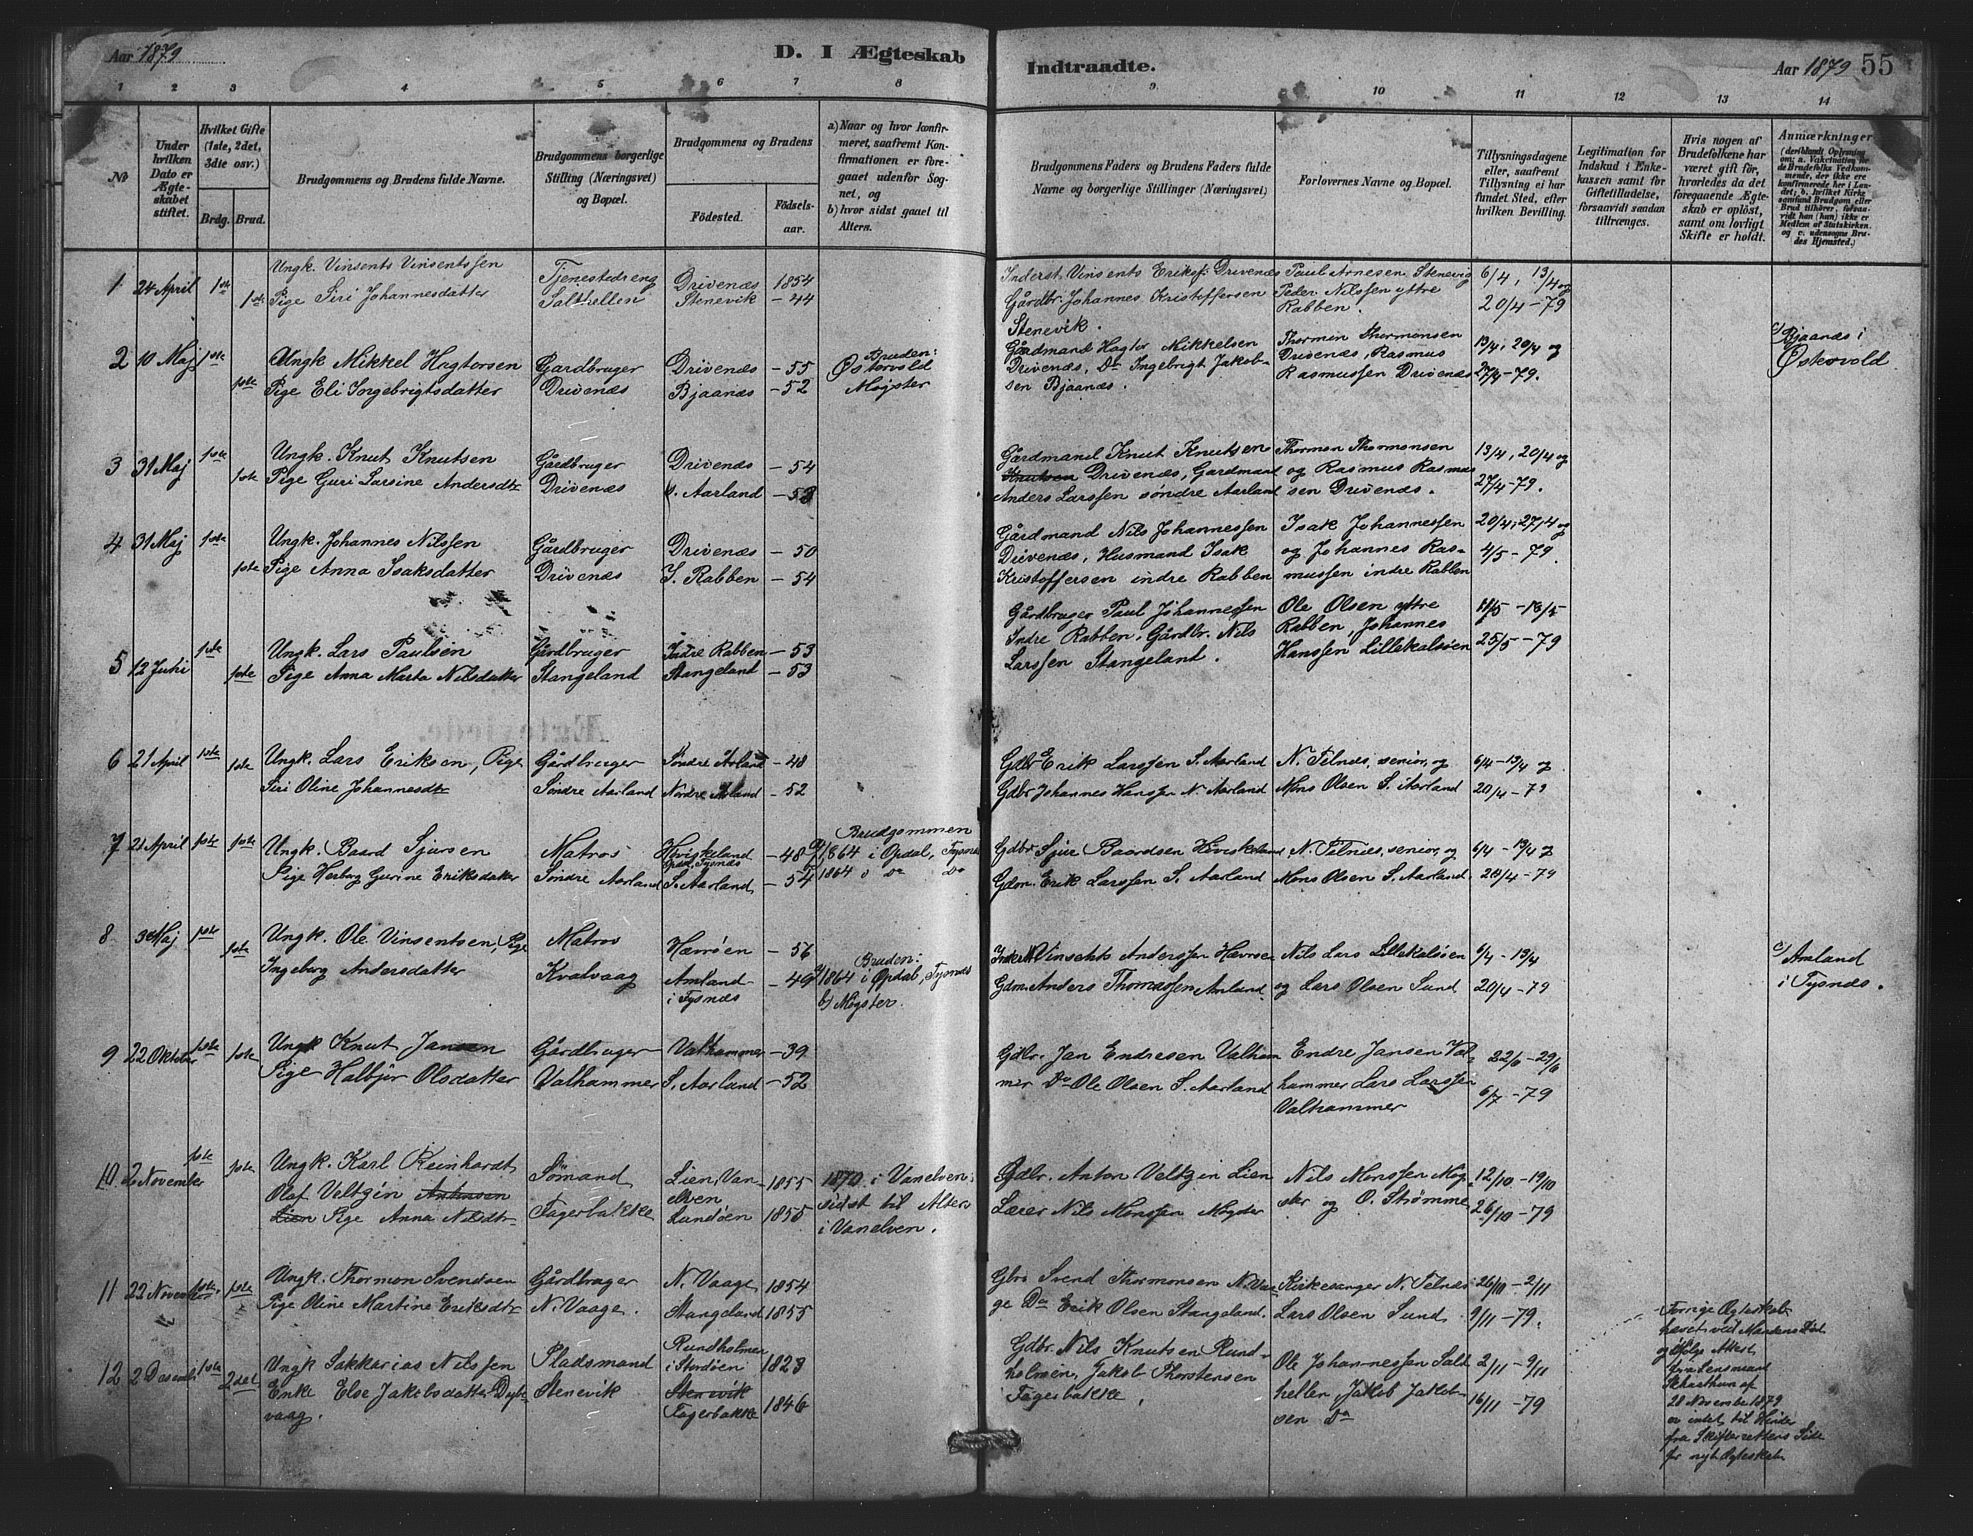 Aar 1879
D. I Ægteskab
Indtraadte.
Aar 1879 55
1 2 3 4 5 6 7 8 9 10 11 12 13 14
No
Under hvilken Dato er Ægteskabet stiftet.
Hvilket Gifte (1ste, 2det, 3die osv.)
Brdg. Brud.
Brudgommens og Brudens fulde Navne.
Brudgommens borgerlige Stilling (Næringsvei) og Bopæl.
Brudgommens og Brudens
Födested.
Födsels-aar.
a) Naar og hvor konfirmeret, saafremt Konfirmationen er foregaaet udenfor Sognet, og
b) hvor sidst gaaet til Alters.
Brudgommens Faders og Brudens Faders fulde Navne og borgerlige Stillinger (Næringsvei)
Forlovernes Navne og Bopæl.
Tillysningsdagene eller, saafremt Tillysning ei har fundet Sted, efter hvilken Bevilling.
Legitimation for Indskud i Enkekassen samt for Giftetilladelse, forsaavidt saadan tiltrænges.
Hvis nogen af Brudefolkene har været gift för, hvorledes da det foregaaende Ægteskab er oplöst, samt om lovligt Skifte er holdt.
Anmærkninger
1 24 April 1ste 1ste
Ungk. Vinsents Vinsentssen
Pige Siri Johannesdatter
Tjenestedreng
Salthellen
Drivenæs 1854
Stenevik - 44
Inderst Vinsents Eriks. Drivenæs
Gårdbr. Johannes Kristoffersen
Stenevik.
Paul Arnesen Stenevig
Peder Nilssen yttre
Rabben.
6/4, 13/4 og
20/4 - 79
2 10 Maj 1ste 1ste
Ungk Mikkel Hagtorsen
Pige Eli Ingebrigtsdatter
Gardbruger
Drivenæs
Drivenæs - 55
Bjaanæs - 52
Bruden:
Østervold
Møgster
Gårdmand Hagtor Mikkelsen
Drivenæs, Do Ingebrigt Jakob-
sen Bjaanæs.
Thormon Thormonsen
Drivenæs, Rasmus
Rasmussen Drivenæs
13/4, 20/4 og
27/4 - 79.
c) Bjaanæs i
Østervold
3 31 Maj 1ste 1ste
Ungk. Knut Knutsen
Pige Guri Larsine Andersdtr
Gårdbruger
Drivenæs
Drivenæs - 54
S. Aarland - 53
Gårdmand Knut Knutsen
Knutsen Drivenæs, Gardmand
Anders Larssen søndre Aarland
Thormon Thormonsen
og Rasmus Rasmus
sen Drivenæs.
13/4, 20/4 og
27/4 - 79.
4 31 Maj 1ste 1ste
Ungk. Johannes Nilssen
Pige Anna Isaksdatter
Gårdbruger
Drivenæs
Drivenæs - 50
I. Rabben - 54
Gårdmand Nils Johannessen
Drivenæs, Husmand Isak
Kristoffersen indre Rabben
Isak Johannessen
og Johannes Ras-
mussen indre Rabben
20/4, 27/4 og
4/5 - 79.
5 12 Juni 1ste 1ste
Ungk. Lars Paulsen
Pige Anna Marta Nilsdatter
Gårdbruger
Stangeland
Indre Rabben - 53
Stangeland - 53
Gårdbruger Paul Johannessen
Indre Rabben. Gårdbr. Nils
Larssen Stangeland.
Ole Olsen yttre
Rabben, Johannes
Hanssen Lillekalsøen
11/5 - 18/5
25/5 - 79
6 21 April 1ste 1ste
Ungk. Lars Eriksen, Pige
Siri Oline Johannesdtr
Gårdbruger
Søndre Aarland
Søndre Arland - 48
Nordre Arland - 52
Gdbr Erik Larssen S. Aarland
Gdbr Johannes Hanssen N. Aarland
N. Telnæs, senior, og
Mons Olsen S. Aarland
6/4 - 13/4 og
20/4 - 79
7 21 April 1ste 1ste
Ungk. Baard Sjursen
Pige Herborg Gurine Eriksdatter
Matros
Søndre Aarland
Heviskeland
Tysnæs - 48
S. Aarland - 54
Brudgommen
a) 1864 i Opdal, Tysnæs
1864 i Do Do
Gdbr Sjur Baardsen Heviskeland
Gdm. Erik Larssen S. Aarland
N. Telnæs, senior, og
Mons Olsen S. Aarland.
6/4 - 13/4 og
20/4 - 79
8 Maj 1ste 1ste
Ungk. Ole Vinsentsen, Pige
Ingeborg Andersdatter
Matros
Kvalvaag
Hævrøen - 56
Amland
i Tysnæs - 49
Bruden:
a) 1864 i Opdal, Tysnæs
b) Møgster.
Vinsents Anderssen Hævrøen
Gdm. Anders Thomassen Amland.
Nils Lars Lillekalsøen
og Lars Olsen Sund
6/4 - 13/4
20/4 - 79
c) Amland
i Tysnæs.
9 22 Oktober 1ste 1ste
Ungk Knut Jansen
Pige Halbjør Olsdatter
Gårdbruger
Valhammer
Valhammer - 39
S. Aarland - 52
Gdbr. Jan Endresen Valham
mer Do Ole Olsen S. Aarland
Endre Jansen Val-
hammer Lars Larssen
Valhammer
22/6 - 29/6
6/7 - 79
10 2 November 1ste 1ste
Ungk. Karl Reinhardt
Olaf Veltzin Antonsen
Lien Pige Anna Nilsdtr
Sømand
Fagerbakke
Lien, Van-
elven 1855
Lundøen 1855
1870 i Vanelven:
sidst til Alters
i Vanelven.
Gdbr. Anton Veltzin Lien
Lærer Nils Monssen Møgster
Nils Monssen Møg-
ster og O. Strømme
12/10 - 19/10
26/10 - 79
11 22 November 1ste 1ste
Ungk. Thormon Svendsen
Pige Oline Martine Eriksdtr
Gårdbruger
N. Vaage.
N. Vaage 1854
Stangeland 1855
Gbr Svend Thormonsen N. Vaa-
ge Do Erik Olsen Stangeland.
Kirkesanger N. Telnæs
Lars Olsen Sund
26/10 - 2/11
9/11 - 79.
12 2 Desemb. 1ste 2det
Ungk Sakkarias Nilssen
Enke Else Jakobsdatter Dyb-
vaag.
Pladsmand
Stenevik
Rundholmen
i Stordøen 1828
Stenevik
Fagerbakke 1846
Gdbr. Nils Knutsen Rund-
holmen, Jakob Thorstensen
Fagerbakke.
Ole Johannessen Salt
hellen, Jakob Jakob-
sen Do
2/11 - 9/11
16/11 - 79
Forrige Ægteskab
hævet ved Mandens Død
og ifølge Attest
28 November 1879
er intet til Hinder
fra Skifterettens Side
for nyt Ægteskab